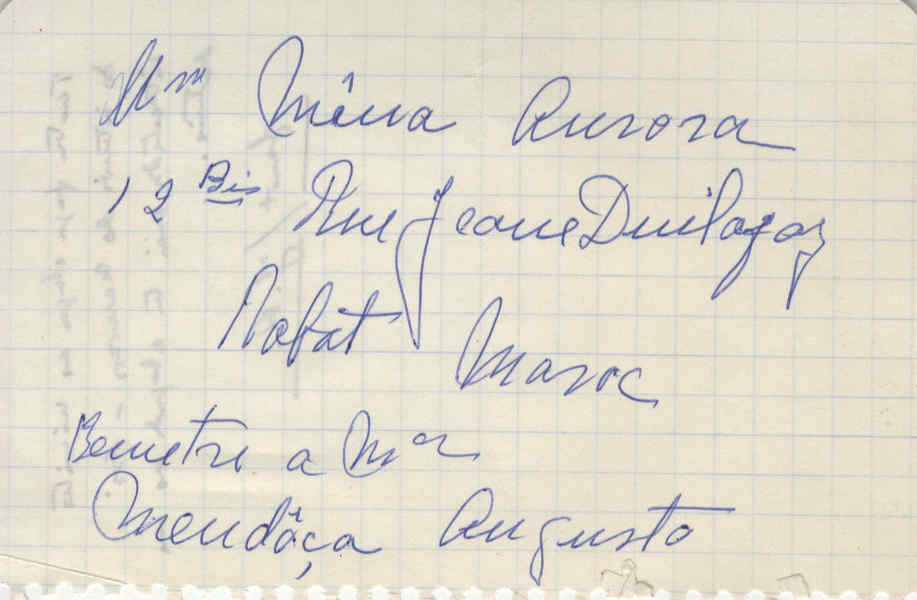 Mm Mêna Aurora
12 Bis Rue Jeane Duilagaz
Rabat Maroc
Remetre a Mer
Mendôça Augusto